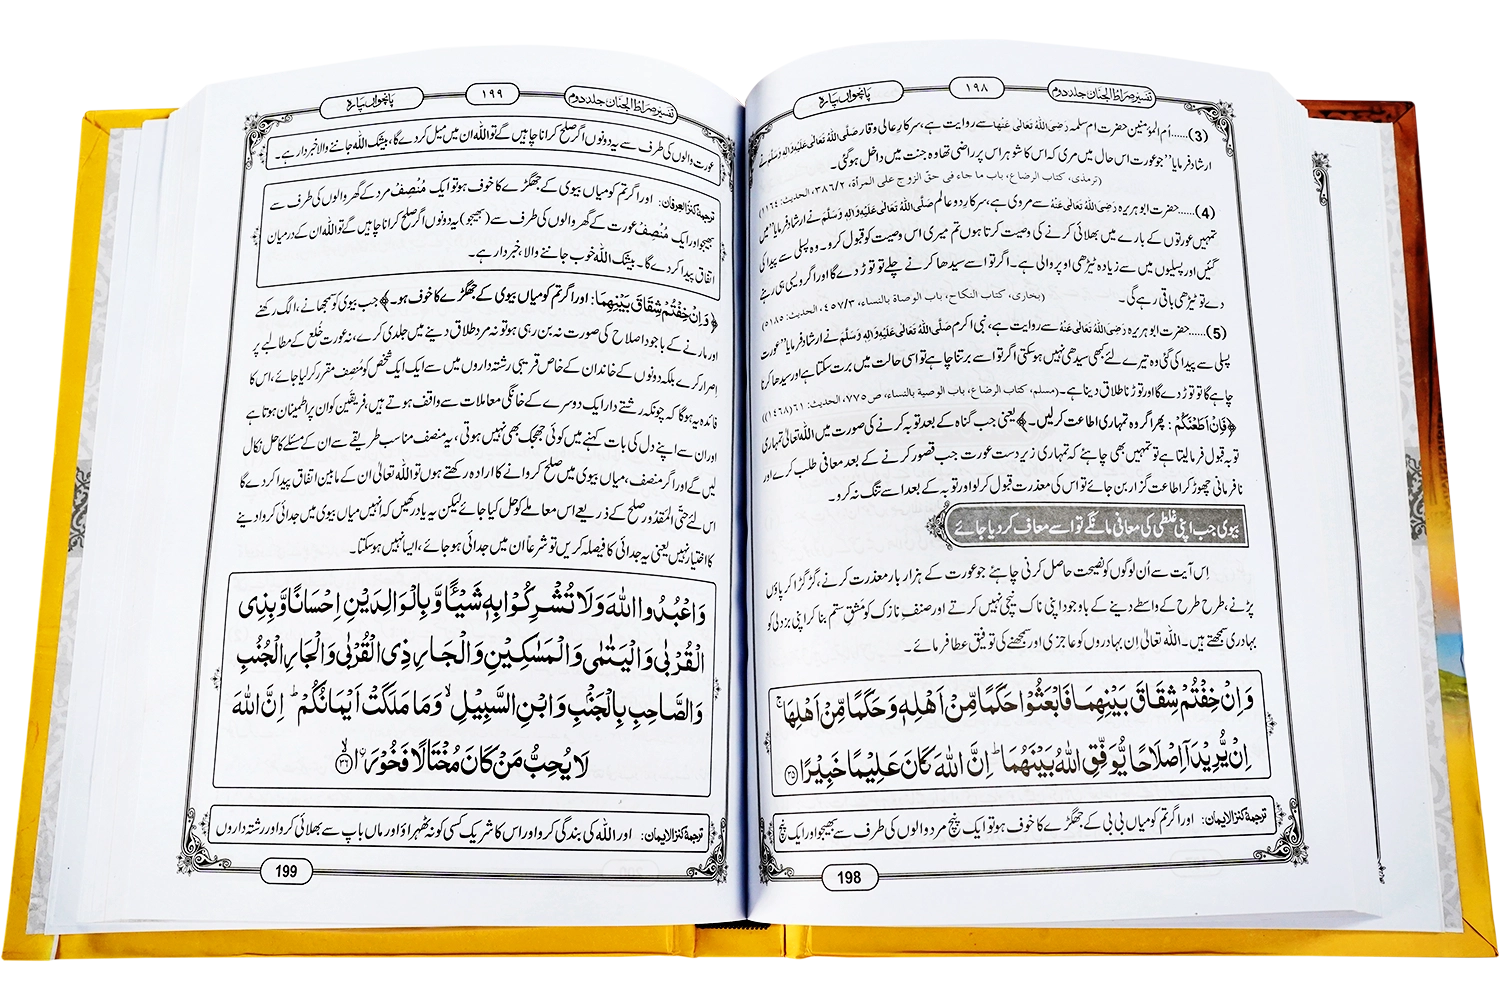 تفسیر صراط الجنان جلد دوم
۱۹۸
پانچواں پارہ
(3)......اُم المؤمنین حضرت ام سلمہ رَضِیَ اللہُ تَعَالٰی عَنْہا سے روایت ہے، سرکارِ عالی وقار صَلَّی اللہُ تَعَالٰی عَلَیْہِ وَاٰلِہٖ وَسَلَّمَ نے
ارشاد فرمایا ”جو عورت اس حال میں مری کہ اس کا شوہر اس پر راضی تھا وہ جنت میں داخل ہوگئی۔
(ترمذی، کتاب الرضاع، باب ما جاء فی حق الزوج علی المرأة، ۳۸۶/۲، الحدیث: ۱۱۶۴)
(4)......حضرت ابو ہریرہ رَضِیَ اللہُ تَعَالٰی عَنْہُ سے مروی ہے، سرکارِ دو عالم صَلَّی اللہُ تَعَالٰی عَلَیْہِ وَاٰلِہٖ وَسَلَّمَ نے ارشاد فرمایا ”میں
تمہیں عورتوں کے بارے میں بھلائی کرنے کی وصیت کرتا ہوں تم میری اس وصیت کو قبول کرو۔ وہ پسلی سے پیدا کی
گئیں اور پسلیوں میں سے زیادہ ٹیڑھی اوپر والی ہے۔ اگر تو اسے سیدھا کرنے چلے تو توڑ دے گا اور اگر ویسی ہی رہنے
دے تو ٹیڑھی باقی رہے گی۔ (بخاری، کتاب النکاح، باب الوصاة بالنساء، ۴۵۷/۳، الحدیث: ۵۱۸۵)
(5)......حضرت ابو ہریرہ رَضِیَ اللہُ تَعَالٰی عَنْہُ سے روایت ہے، نبی اکرم صَلَّی اللہُ تَعَالٰی عَلَیْہِ وَاٰلِہٖ وَسَلَّمَ نے ارشاد فرمایا ”عورت
پسلی سے پیدا کی گئی وہ تیرے لئے کبھی سیدھی نہیں ہو سکتی اگر تو اسے برتنا چاہے تو اسی حالت میں برت سکتا ہے اور سیدھا کرنا
چاہے گا تو توڑ دے گا اور توڑنا طلاق دینا ہے۔ (مسلم، کتاب الرضاع، باب الوصیة بالنساء، ص ۷۷۵، الحدیث: ۶۱(۱۴۶۸))
﴿فَاِنْ اَطَعْنَكُمْ: پھر اگر وہ تمہاری اطاعت کرلیں۔﴾ یعنی جب گناہ کے بعد توبہ کرنے کی صورت میں اللہ تعالیٰ تمہاری
توبہ قبول فرمالیتا ہے تو تمہیں بھی چاہئے کہ تمہاری زیرِ دست عورت جب قصور کرنے کے بعد معافی طلب کرے اور
نافرمانی چھوڑ کر اطاعت گزار بن جائے تو اس کی معذرت قبول کرلو اور توبہ کے بعد اسے تنگ نہ کرو۔
بیوی جب اپنی غلطی کی معافی مانگے تو اسے معاف کردیا جائے
اِس آیت سے اُن لوگوں کو نصیحت حاصل کرنی چاہئے جو عورت کے ہزار بار معذرت کرنے، گڑگڑا کر پاؤں
پڑنے، طرح طرح کے واسطے دینے کے باوجود اپنی ناک نیچی نہیں کرتے اور صنفِ نازک کو مَشقِ ستم بنا کر اپنی بزدلی کو
بہادری سمجھتے ہیں۔ اللہ تعالیٰ اِن بہادروں کو عاجزی اور سمجھنے کی توفیق عطا فرمائے۔
وَاِنْ خِفْتُمْ شِقَاقَ بَیْنِهِمَا فَابْعَثُوْا حَكَمًا مِّنْ اَهْلِهٖ وَحَكَمًا مِّنْ اَهْلِهَا ۚ
اِنْ یُّرِیْدَاۤ اِصْلَاحًا یُّوَفِّقِ اللّٰهُ بَیْنَهُمَا ؕ اِنَّ اللّٰهَ كَانَ عَلِیْمًا خَبِیْرًا ﴿۳۵﴾
ترجمۂ کنزالایمان: اور اگر تم کو میاں بی بی کے جھگڑے کا خوف ہو تو ایک پنچ مرد والوں کی طرف سے بھیجو اور ایک پنچ
198
تفسیر صراط الجنان جلد دوم
۱۹۹
پانچواں پارہ
عورت والوں کی طرف سے یہ دونوں اگر صلح کرانا چاہیں گے تو اللہ ان میں میل کردے گا، بیشک اللہ جاننے والا خبردار ہے۔
ترجمۂ کنزالعرفان: اور اگر تم کو میاں بیوی کے جھگڑے کا خوف ہو تو ایک مُنْصِف مرد کے گھر والوں کی طرف سے
بھیجو اور ایک مُنْصِف عورت کے گھر والوں کی طرف سے (بھیجو) یہ دونوں اگر صلح کرانا چاہیں گے تو اللہ ان کے درمیان
اتفاق پیدا کردے گا۔ بیشک اللہ خوب جاننے والا، خبردار ہے۔
﴿وَاِنْ خِفْتُمْ شِقَاقَ بَیْنِهِمَا: اور اگر تم کو میاں بیوی کے جھگڑے کا خوف ہو۔﴾ جب بیوی کو سمجھانے، الگ رکھنے
اور مارنے کے باوجود اصلاح کی صورت نہ بن رہی ہو تو نہ مرد طلاق دینے میں جلدی کرے، نہ عورت خُلع کے مطالبے پر
اِصرار کرے بلکہ دونوں کے خاندان کے خاص قریبی رشتہ داروں میں سے ایک ایک شخص کو مُنصِف مقرر کرلیا جائے، اس کا
فائدہ یہ ہوگا کہ چونکہ رشتے دار ایک دوسرے کے خانگی معاملات سے واقف ہوتے ہیں، فریقین کو ان پر اطمینان ہوتا ہے
اور ان سے اپنے دل کی بات کہنے میں کوئی جھجک بھی نہیں ہوتی، یہ منصف مناسب طریقے سے ان کے مسئلے کا حل نکال
لیں گے اور اگر منصف، میاں بیوی میں صلح کروانے کا ارادہ رکھتے ہوں تو اللہ تعالیٰ ان کے مابین اتفاق پیدا کردے گا
اس لئے حتَّی المَقْدُور صلح کے ذریعے اس معاملے کو حل کیا جائے لیکن یہ یاد رکھیں کہ اُنہیں میاں بیوی میں جدائی کروا دینے
کا اختیار نہیں یعنی یہ جدائی کا فیصلہ کریں تو شرعاً ان میں جدائی ہوجائے، ایسا نہیں ہوسکتا۔
وَاعْبُدُوا اللّٰهَ وَلَا تُشْرِكُوْا بِهٖ شَیْـًٔا وَّبِالْوَالِدَیْنِ اِحْسَانًا وَّبِذِی
الْقُرْبٰى وَالْیَتٰمٰى وَالْمَسٰكِیْنِ وَالْجَارِ ذِی الْقُرْبٰى وَالْجَارِ الْجُنُبِ
وَالصَّاحِبِ بِالْجَنْۢبِ وَابْنِ السَّبِیْلِ ۙ وَمَا مَلَكَتْ اَیْمَانُكُمْ ؕ اِنَّ اللّٰهَ
لَا یُحِبُّ مَنْ كَانَ مُخْتَالًا فَخُوْرَا ۙ﴿۳۶﴾
ترجمۂ کنزالایمان: اور اللہ کی بندگی کرو اور اس کا شریک کسی کو نہ ٹھہراؤ اور ماں باپ سے بھلائی کرو اور رشتہ داروں
199